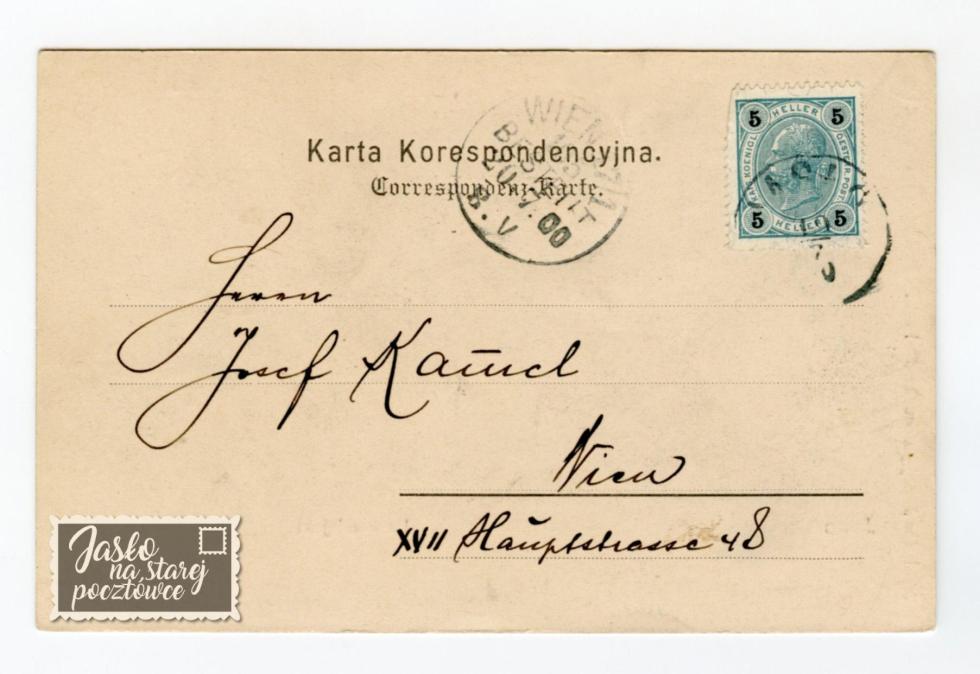 Karta Korespondencyjna.
Correspondenz-Karte.
WIEN
BESTELLT
20 7.00
8.V
5 HELLER 5
KAIS. KOENIGL. OESTERR. POST
5 HELLER 5
Herrn
Josef
Wien
XVII Hauptstrasse 48
Jasło
na starej
pocztówce